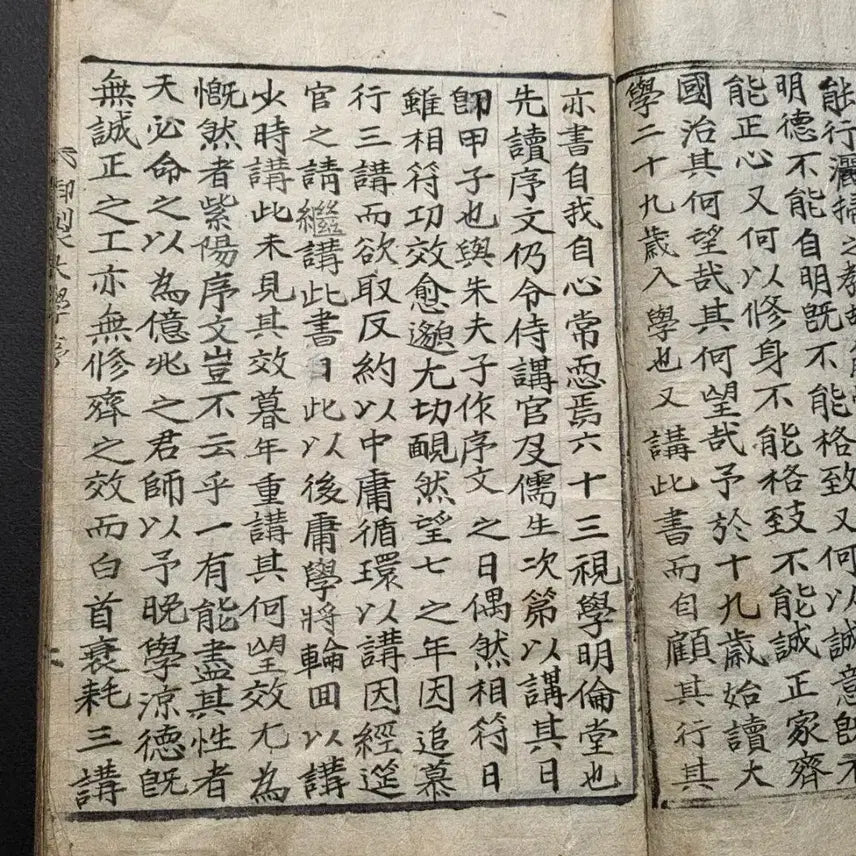 能行灑掃之教故
明德不能自明旣不能格致又何以誠意旣不
能正心又何以修身不能格致不能誠正家齊
國治其何望哉其何望哉予於十九歲始讀大
學二十九歲入學也又講此書而自顧其行其
亦書自我自心常恧焉六十三視學明倫堂也
先讀序文仍令侍講官及儒生次第以講其日
卽甲子也與朱夫子作序文之日偶然相符日
雖相符功效愈邈尤切靦然望七之年因追慕
行三講而欲取反約以中庸循環以講因經筵
官之請繼講此書日此以後庸學將輪回以講
少時講此未見其效暮年重講其何望效尤為
慨然者紫陽序文豈不云乎一有能盡其性者
天必命之以為億兆之君師以予晩學涼德旣
無誠正之工亦無修齊之效而白首衰耗三講
御製大學序